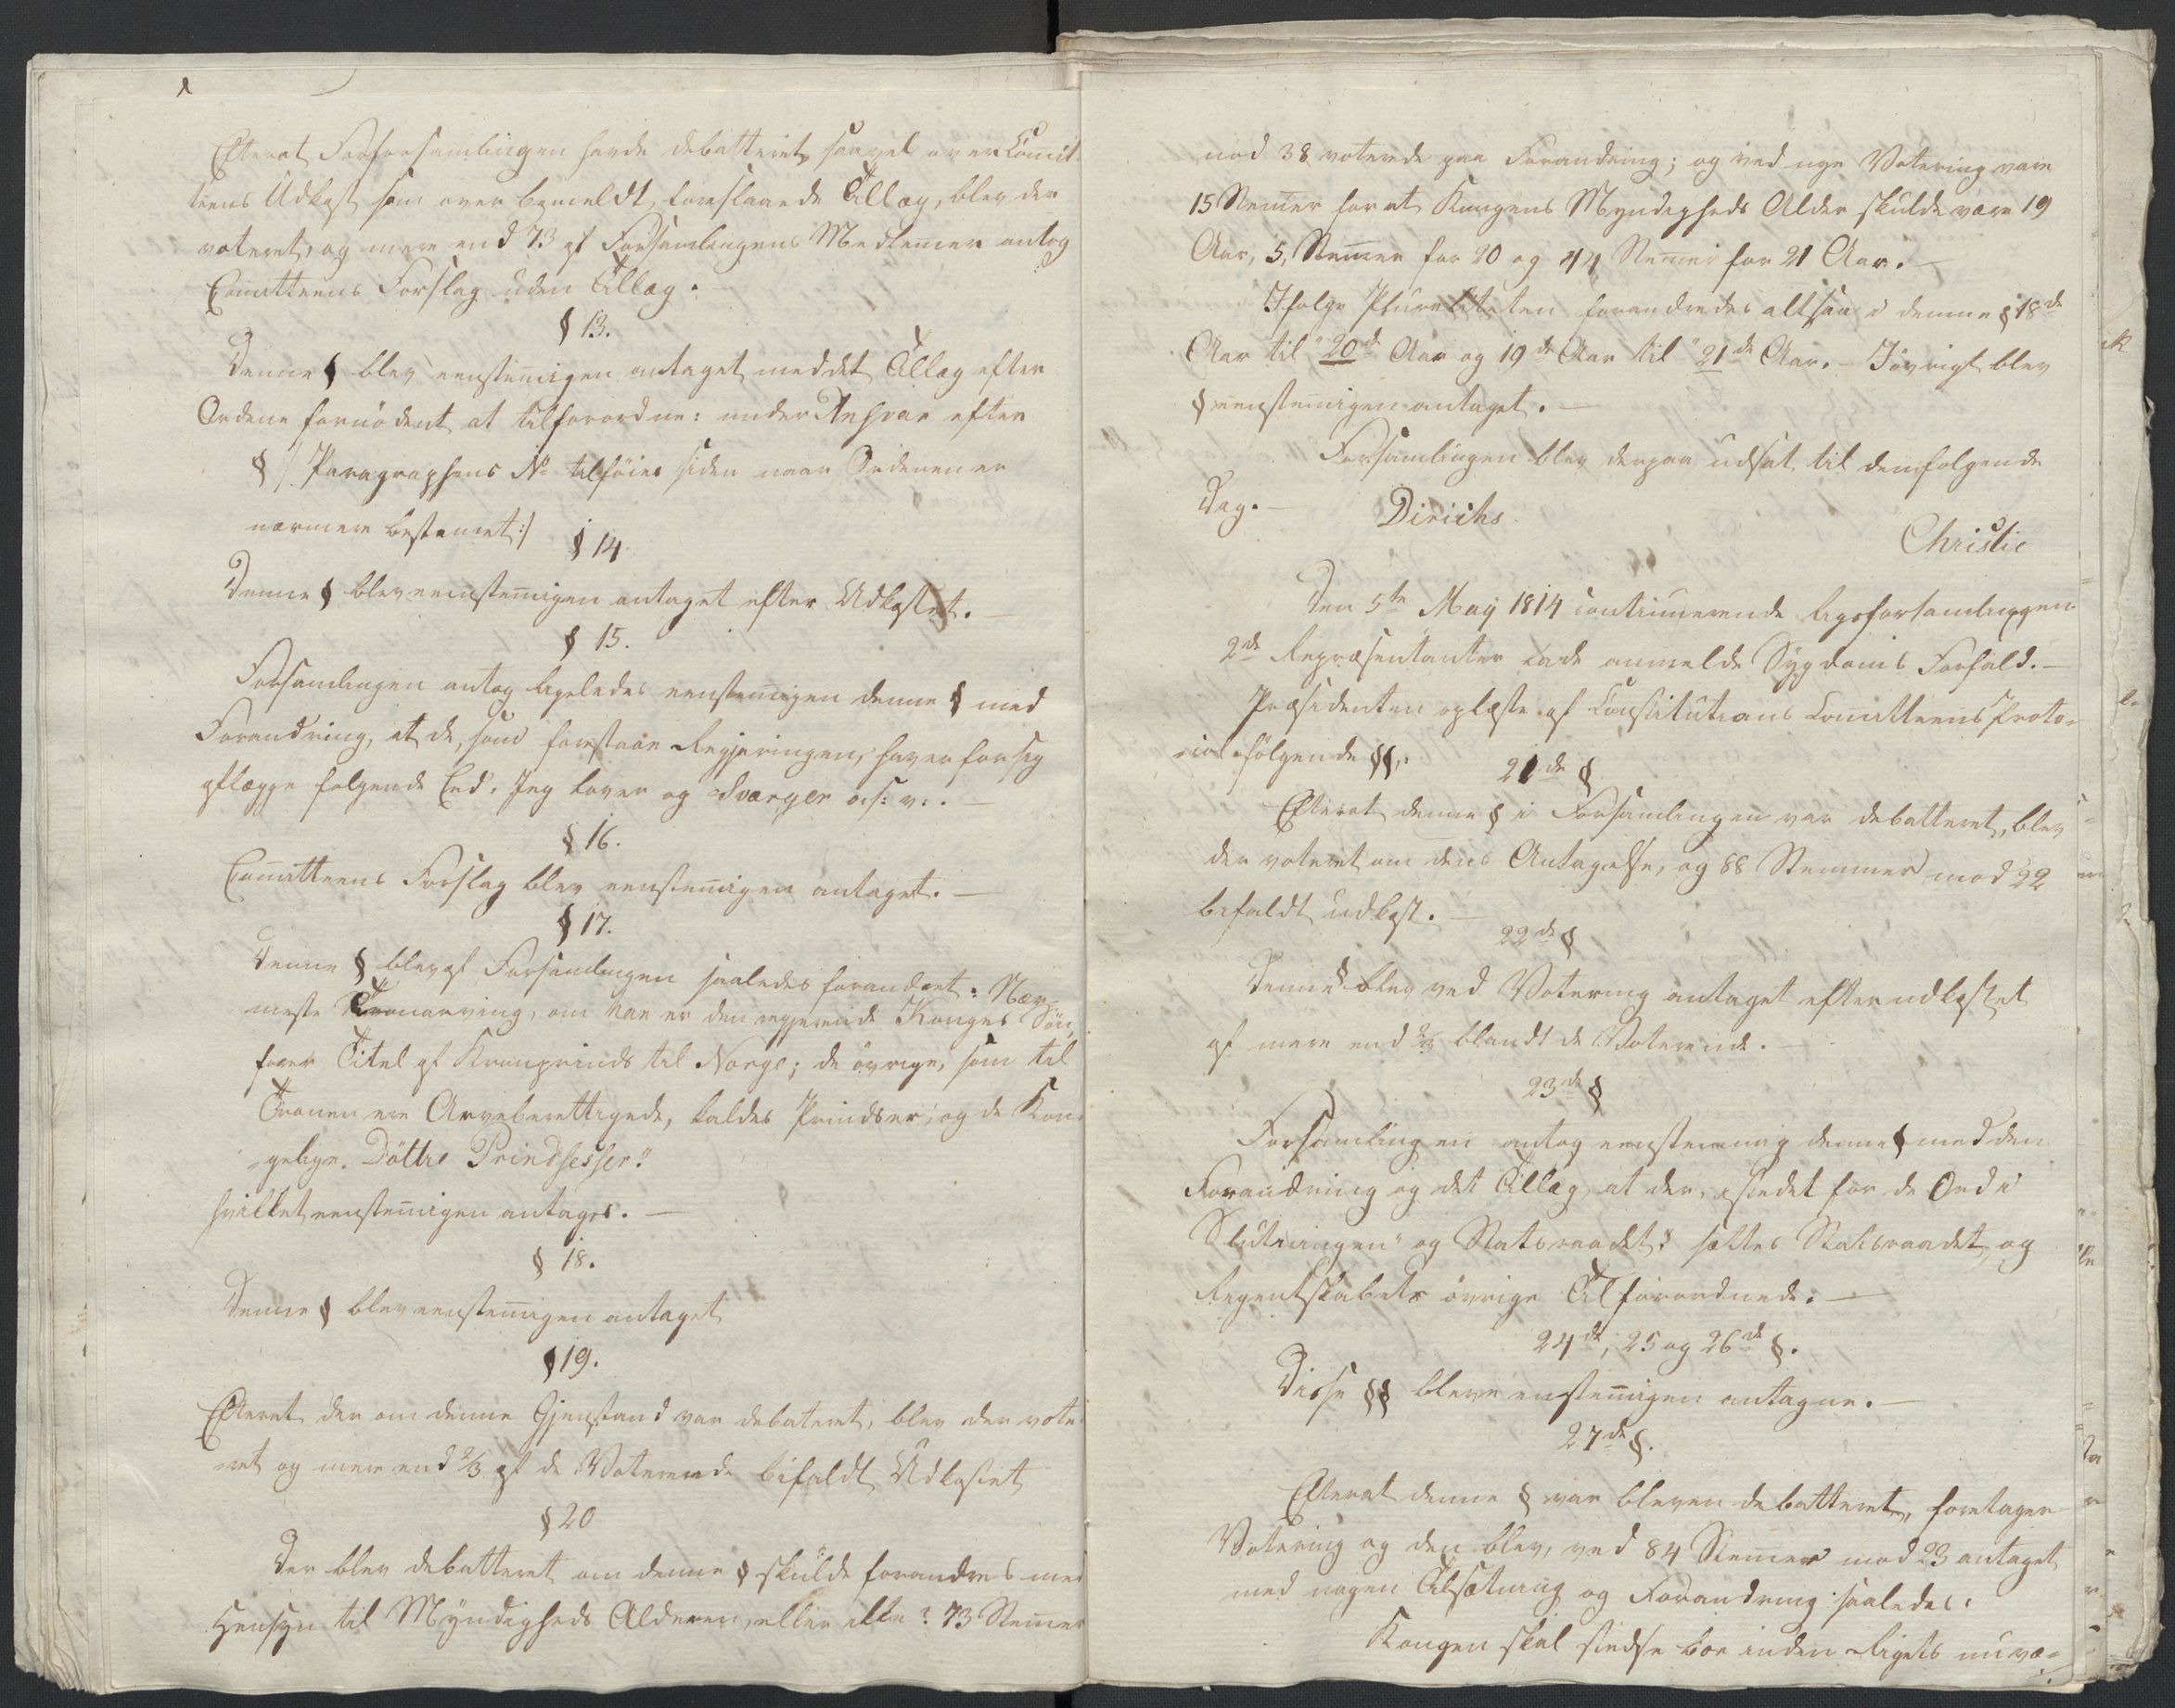 Efterat Forsamlingen havde debatteret saavel over Comit-
teens Udkast som over bemeldt foreslaaede Tillæg, blev der
voteret, og mere end 73 af Forsamlingens Medlem̅er antog
Com̅itteens Forslag uden Tillæg.
§ 13.
Denne § blev eenstem̅igen antaget med det Tillæg efter
Ordene fornödent at tilforordne: under Ansvar efter
§ /: Paragraphens No tilföies siden naar Ordenen er
nærmere bestem̅et :/
§ 14
Denne § blev eenstem̅igen antaget efter Udkastet. —
§ 15.
Forsamlingen antog ligeledes eenstem̅igen denne § med
Forandring, at de, som forestaae Regjeringen, haver for sig
aflægge folgende Eed, Jeg lover og Sværger o: s: v: . —
§ 16.
Com̅itteens Forslag blev eenstem̅igen antaget. —
§ 17.
Denne § blev af Forsamlingen saaledes forandret: Nær-
meste Tronarving, om han er den regjerende Konges Sön,
forer Titel af Kronprinds til Norge; de övrige, som til
Tronen ere Arveberettigede, kaldes Prindser; og de Kon-
gelige Döttre Prindsesser."
hvilket eenstem̅igen antages. —
§ 18.
Denne § blev eenstem̅igen antaget
§ 19.
Efterat der om denne Gjenstand var debateret, blev der vote
ret og mere end 2/3 af de Voterende bifaldt Udkastet
§ 20
Der blev debatteret om denne § skulde forandres med
Hensyn til Myndigheds Alderen, eller ikke? 73 Stem̅er
mod 38 voterede paa Forandring; og ved nye Votering vare
15 Stem̅er for at Kongens Myndigheds Alder skulde være 19
Aar, 5, Stem̅er for 20 og 44 Stem̅er for 21 Aar. —
Ifolge Pluraliteten forandredes altsaa i denne § 18de
Aar til "20de Aar og 19de Aar til "21de Aar. — Iövrigt blev
§ eenstem̅igen antaget. —
Forsamlingen blev derpaa udsat til den folgende
Dag. —
Diriks.
Christie
Den 5te May 1814 continuerede Rigsforsamlingen
2de Repræsentanter lode anmelde Sygdoms Forfald. —
Præsidenten oplæste af Constitutions Com̅itteens Proto-
col følgende §§:
21de §
Efterat denne § i Forsamlingen var debatteret, blev
der voteret om dens Antagelse, og 88 Stemmer mod 22
bifaldt udkast. —
22de §
Denne § blev ved Votering antaget efter udkastet
af mere end 2/3 blandt de Voterende. —
23de §
Forsamlingen antog eenstemmig denne § med den
Forandring og det Tillæg, at der, istedet for de Ord i
Slutningen "og Statsraadet" sættes Statsraadet og
Regentskabets övrige Tilforordnede. —
24de, 25 og 26de §.
Disse §§ bleve eenstem̅igen antagne. —
27de §.
Efterat denne § var bleven debatteret, foretages
Votering og den blev, ved 84 Stem̅er mod 23 antaget
med nogen Tilsætning og Forandring saaledes:
Kongen skal stedse boe inden Rigets nuvæ-